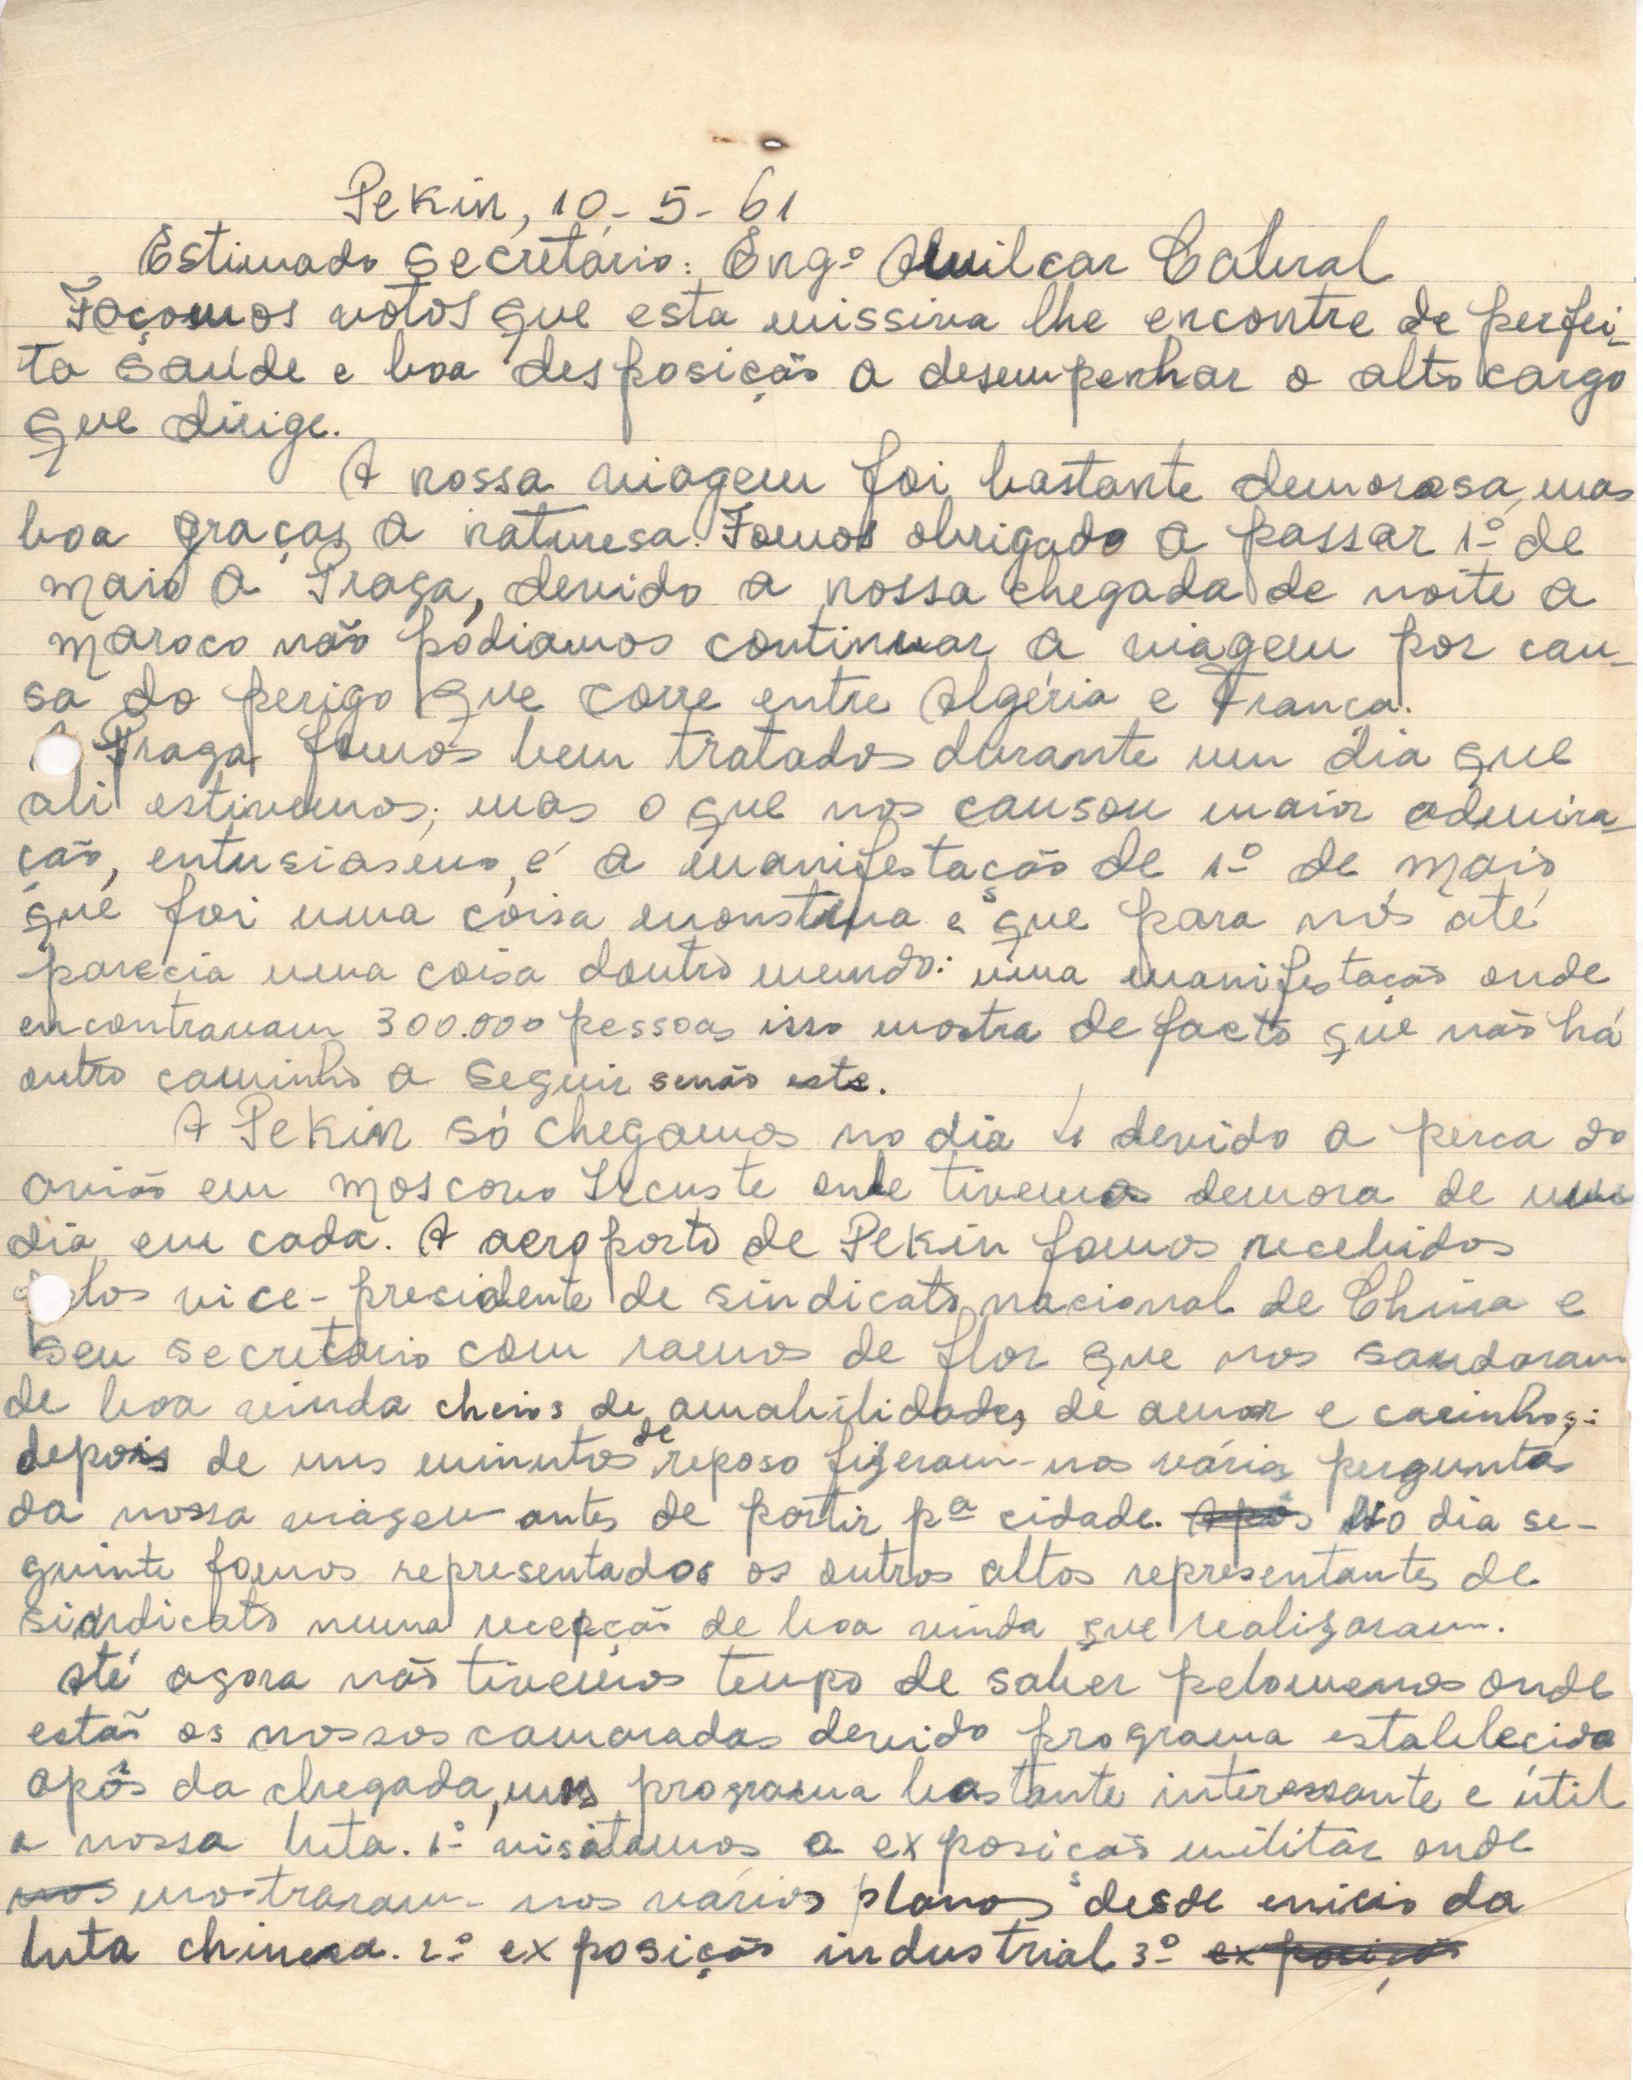 Pekin, 10-5-61
Estimado Secretário: Engº Amilcar Cabral
Façamos votos que esta missiva lhe encontre de perfei-
ta saúde e boa desposição a desempenhar o alto cargo
que dirige.
A nossa viagem foi bastante demorosa, mas
boa graças a naturesa. Fomos obrigado a passar 1º de
maio a Praga, devido a nossa chegada de noite a
Maroco não podiamos continuar a viagem por cau-
sa do perigo que corre entre Algéria e França.
A Praga fomos bem tratados durante um dia que
ali estivemos; mas o que nos causou maior admira-
ção, entusiasmo, é a manifestação de 1º de Maio
que foi uma coisa monstrua e que para nós até
parecia uma coisa doutro mundo: uma manifestação onde
encontravam 300.000 pessoas isso mostra de facto que não há
outro caminho a seguir senão este.
A Pekin só chegamos no dia 4 devido a perca do
avião em Moscovo Ircuste onde tivemos demora de um
dia em cada. A aeroporto de Pekin fomos recebidos
pelos vice-presidente de sindicato nacional de China e
seu secretário com ramos de flor que nos saudaram
de boa vinda cheios de amabilidades, de amor e carinhos;
depois de uns minutos de reposo fizeram-nos várias perguntas
da nossa viagem antes de partir pª cidade. Após No dia se-
guinte fomos representados os outros altos representantes de
sindicato numa recepção de boa vinda que realizaram.
Até agora não tivemos tempo de saber pelomenos onde
estão os nossos camaradas devido programa estabelecido
após da chegada, mas programa bastante interessante e útil
a nossa luta. 1º visitamos a exposição militar onde
nos mostraram-nos vários planos desde enicio da
luta chinesa. 2º exposição industrial 3º exposição